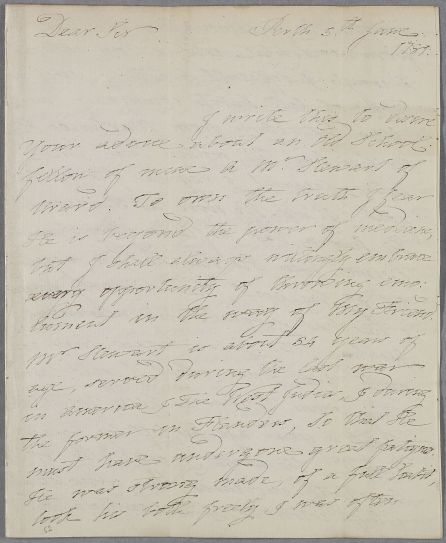 Dear Sir Perth 5th June
1781.
I write this to desire
Your advice about an old School:
fellow of mine a Mr. Stewart of
Urrard. To own the truth I fear
He is beyond the power of medicine,
but I shall always willingly embrace
every opportunity of throwing emo:
lument in the way of My Friend,
Mr Stewart is about 54 years of
age, served during the last war
in America & the West Indies, & during
the former in Flanders, So that He
must have undergone great fatigues
He was strong made, of a full habit,
took his bottle freely & was often